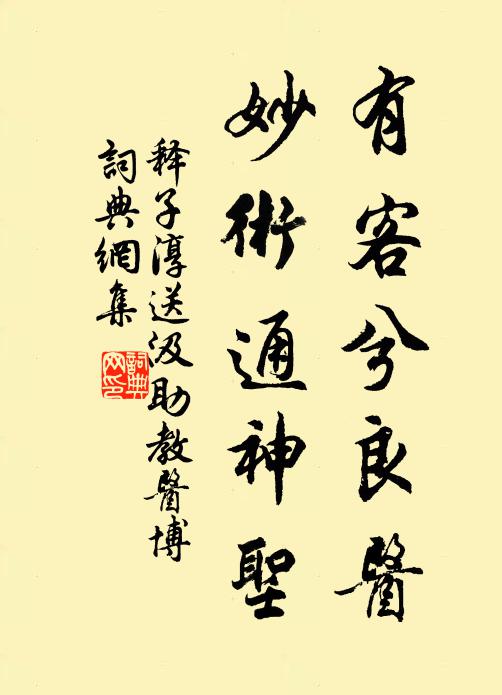 有客兮良醫
妙術通神聖
释子淳送汲助教醫博
詞典網集
詞典
网印